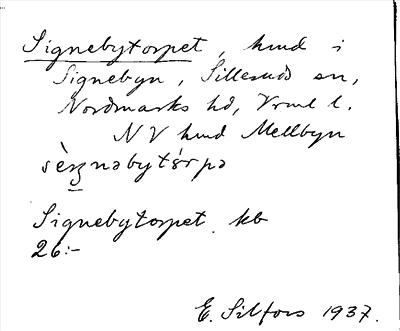 Signebytorpet, hmd i
Signebyn, Silleruds sn,
Nordmarks hd, Vrml l.
NV hmd Mellbyn
sèrʒnəbytɵ́rpə
Signebytorpet kb
26:-
E. Silfors 1937.